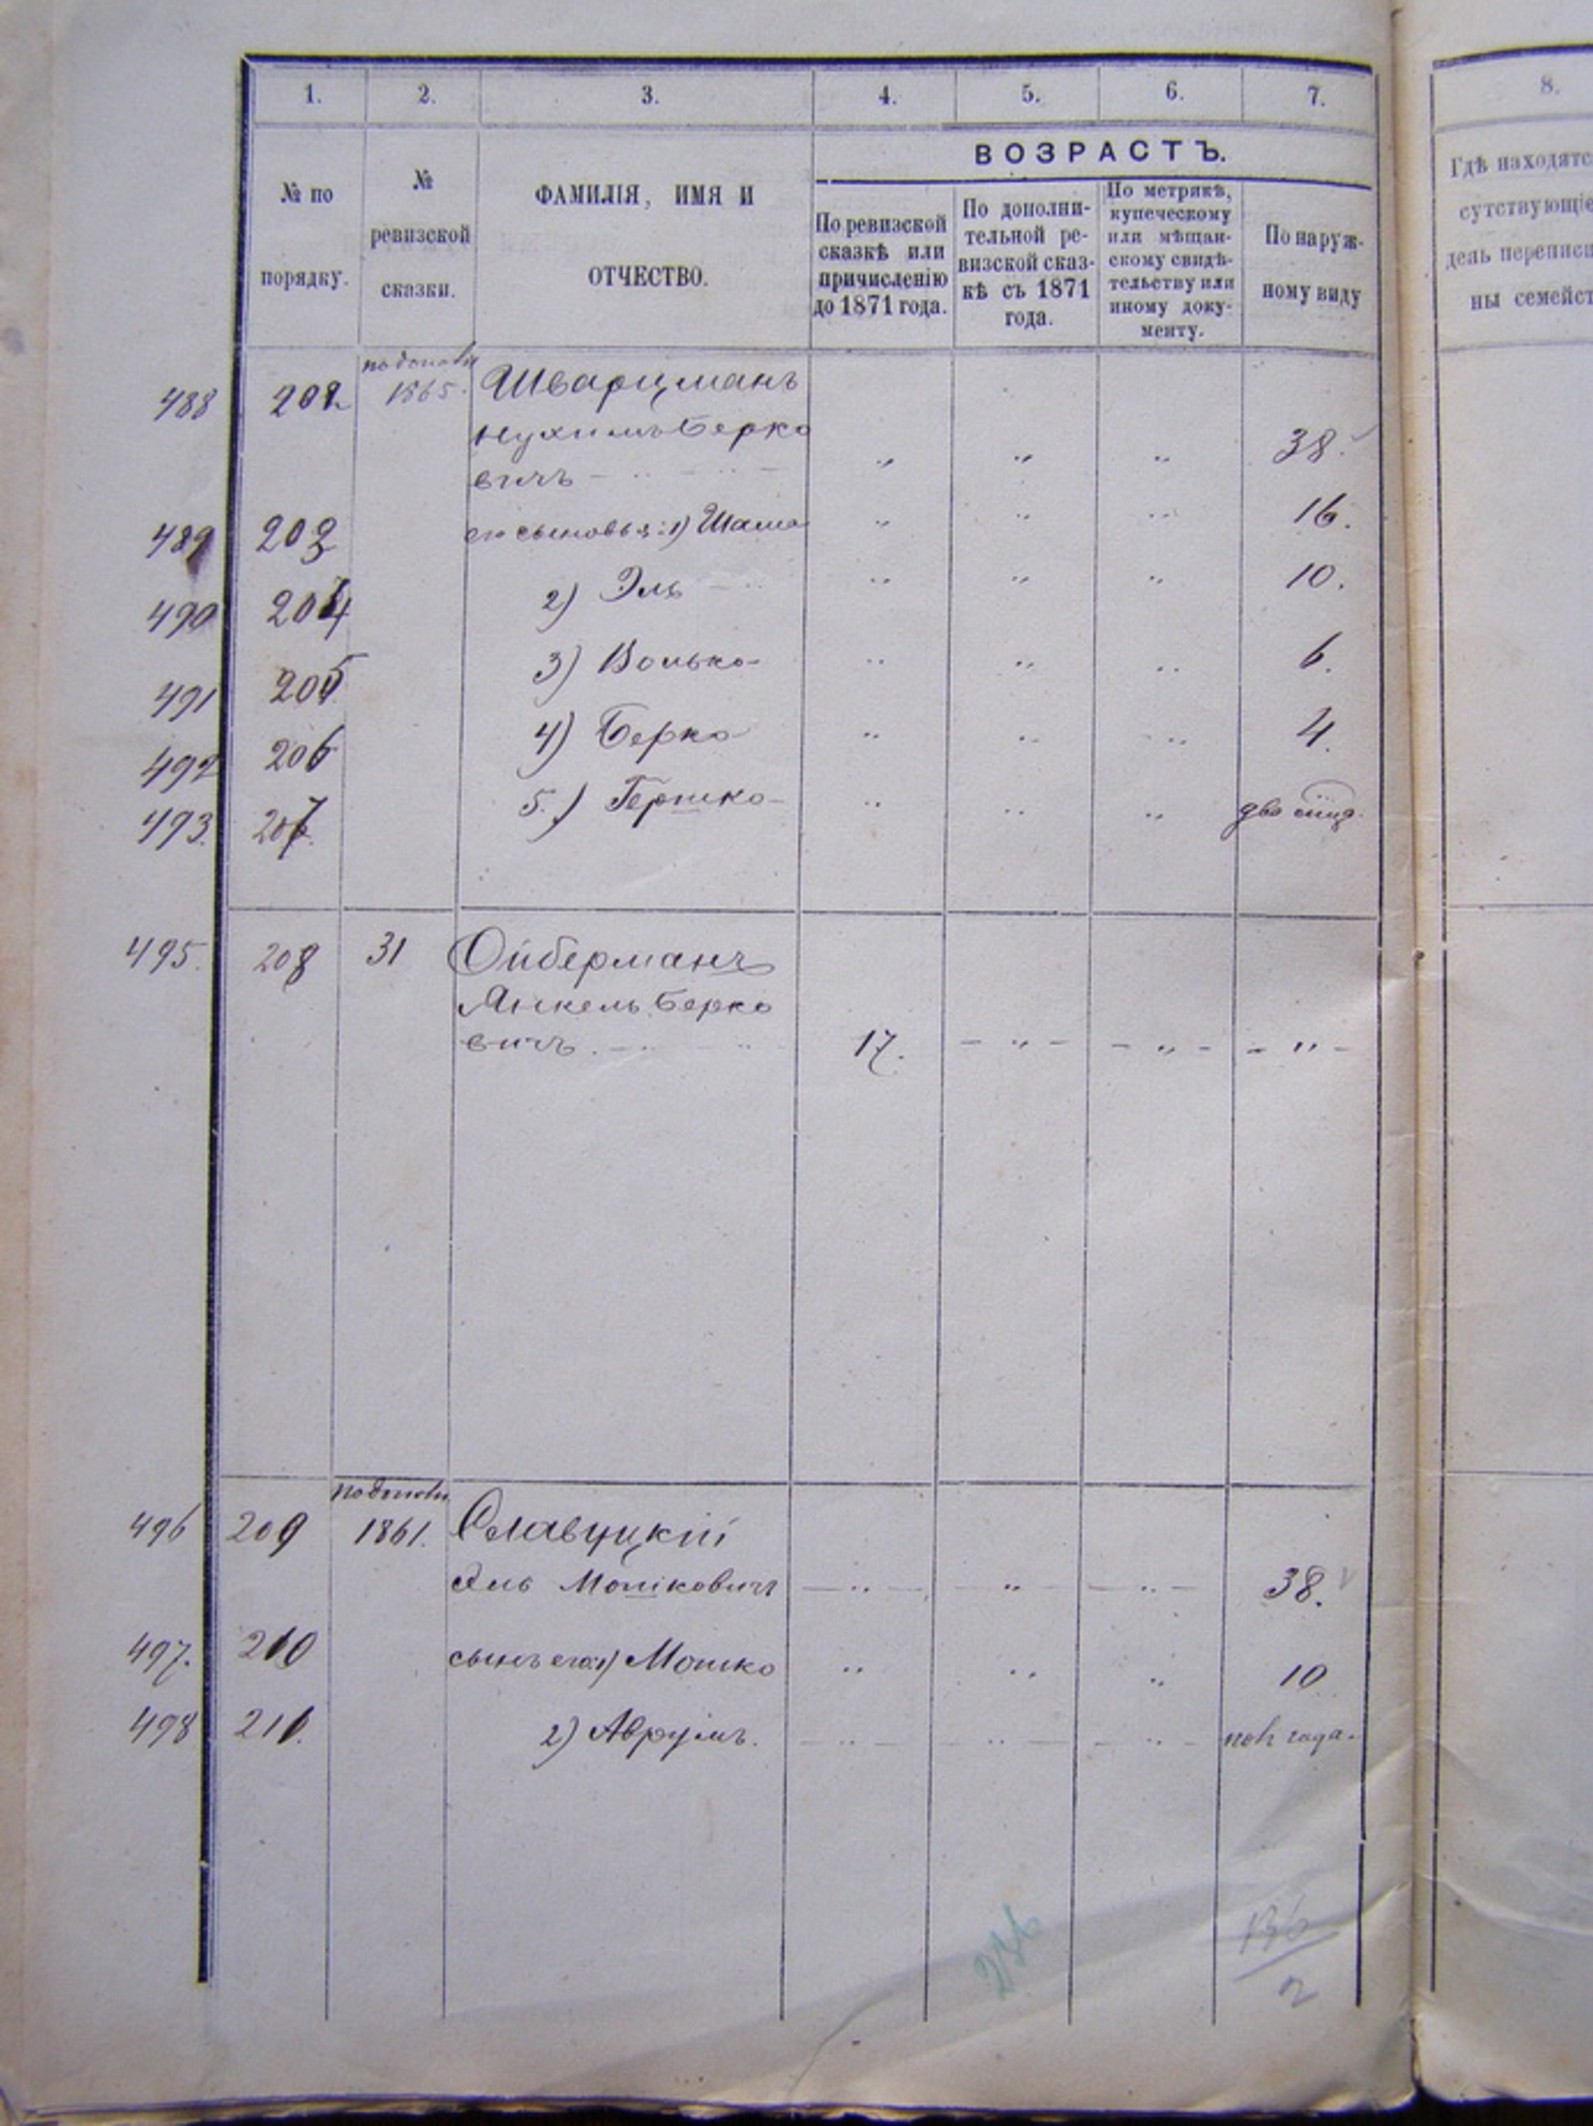 1. 2. 3. 4. 5. 6. 7. 8.
ВОЗРАСТЪ.
№ по
порядку.
№
ревизской
сказки.
ФАМИЛІЯ, ИМЯ И
ОТЧЕСТВО.
По ревизской
сказкѣ или
причисленію
до 1871 года.
По дополни-
тельной ре-
визской сказ-
кѣ съ 1871
года.
По метрикѣ,
купеческому
или мѣщан-
скому свидѣ-
тельству или
иному доку-
менту.
По наруж-
ному виду
Гдѣ находятс
сутствующіе
день переписи
ны семейст
488 202 1865. Шварцманъ
Нухимъ Берко
вичъ „ „ „ 38.
489 203 его сыновья: 1) Шама „ „ „ 16.
490 204 2) Эль „ „ „ 10.
491 205 3) Волько „ „ „ 6.
492 206 4) Берко „ „ „ 4.
493. 207. 5.) Гершко „ „ „ два
495. 208 31 Ойберманъ
Янкель Берко
вичъ. 17. – „ – – „ – – „ –
496 209 1861. Славуцкій
Эль Мошковичъ – „ – – „ – „ – 38.
497. 210 сынъ его: 1) Мошко „ „ „ 10
498 211. 2) Аврумъ. – „ – – „ – – „ – пол года.
236
136
2